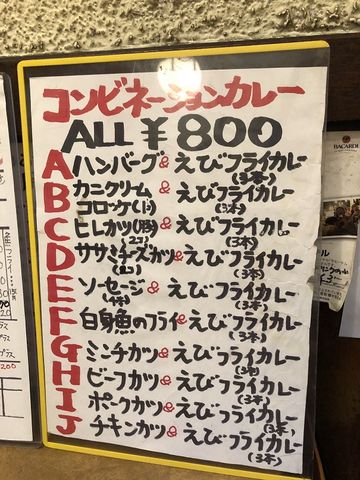 コンビネーションカレー
ALL ¥800
A ハンバーグ&えびフライカレー
(3本)
B カニクリーム&えびフライカレー
コロッケ(1ヶ) (3本)
C ヒレカツ(豚)&えびフライカレー
(2ヶ) (3本)
D ササミチーズカツ&えびフライカレー
(2ヶ) (3本)
E ソーセージ&えびフライカレー
(1本) (3本)
F 白身魚のフライ&えびフライカレー
(3本)
G ミンチカツ&えびフライカレー
(3本)
H ビーフカツ&えびフライカレー
(3本)
I ポークカツ&えびフライカレー
(3本)
J チキンカツ&えびフライカレー
(3本)
BACARDI